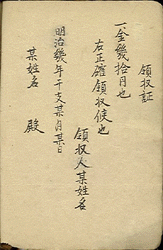 領収証
一金幾拾円也
右正確領収候也
領収人某姓名
明治幾年干支某月某日
某姓名 殿